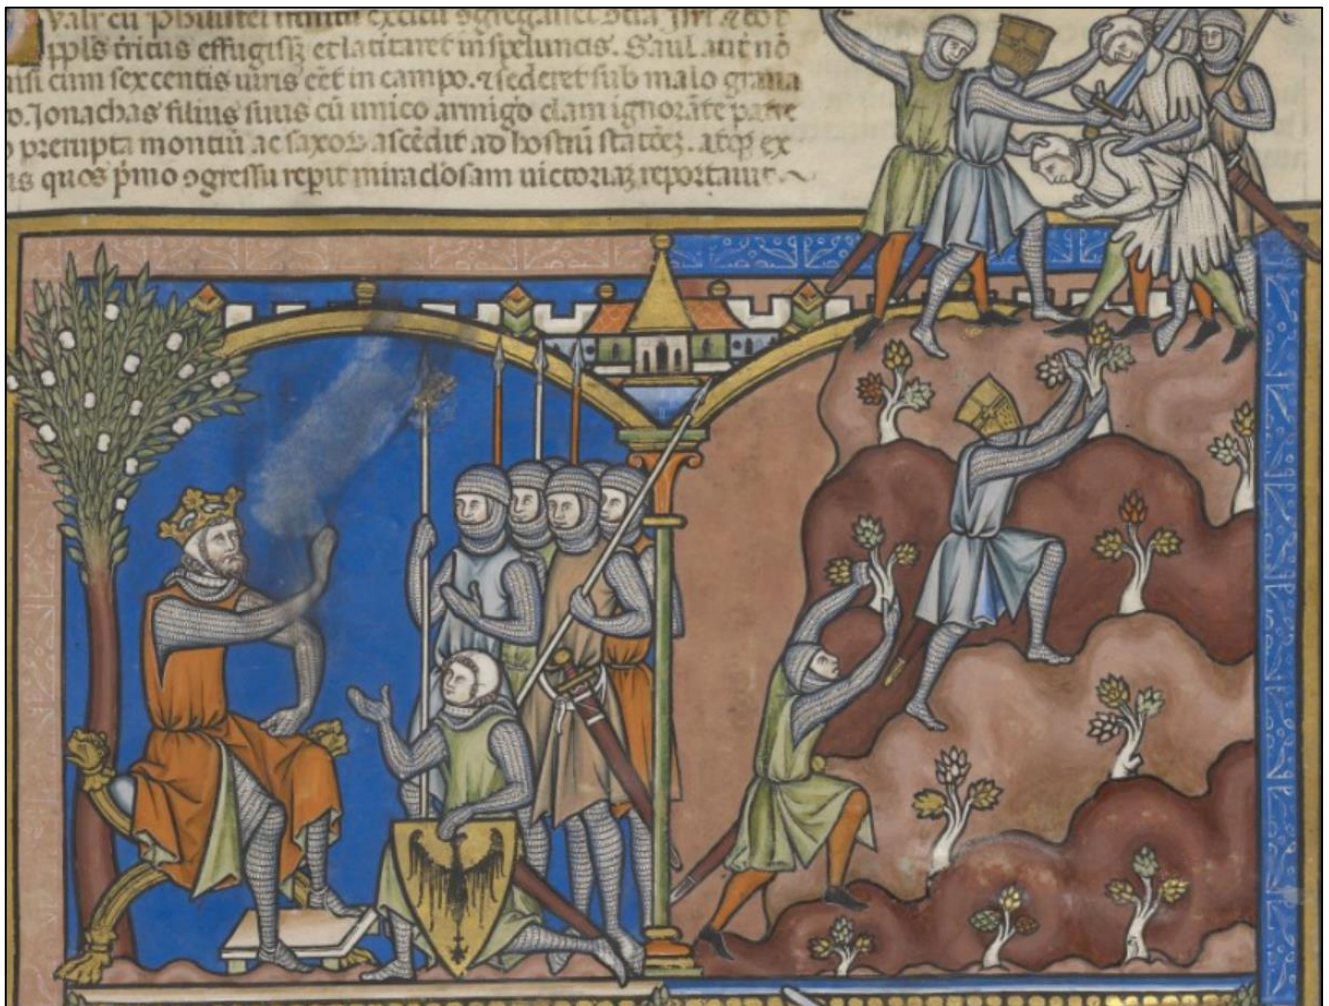 ppłs t̃ritus effugisꝫ et latitaret in speluncis. Saul aut̃ nõ
nisi cum sexcentis uiris eēt in campo. ⁊ sederet sub malo grana
o. Jonathas filius suus cũ unico armiḡo clam ignorāte patre
prerupta montiũ ac saxoꝝ ascẽdit ad hostiũ statõeꝫ. atqꝫ ex
is quos p̃mo ꝯgressu rep̃it miraclosam uictoriaꝫ reportauit.